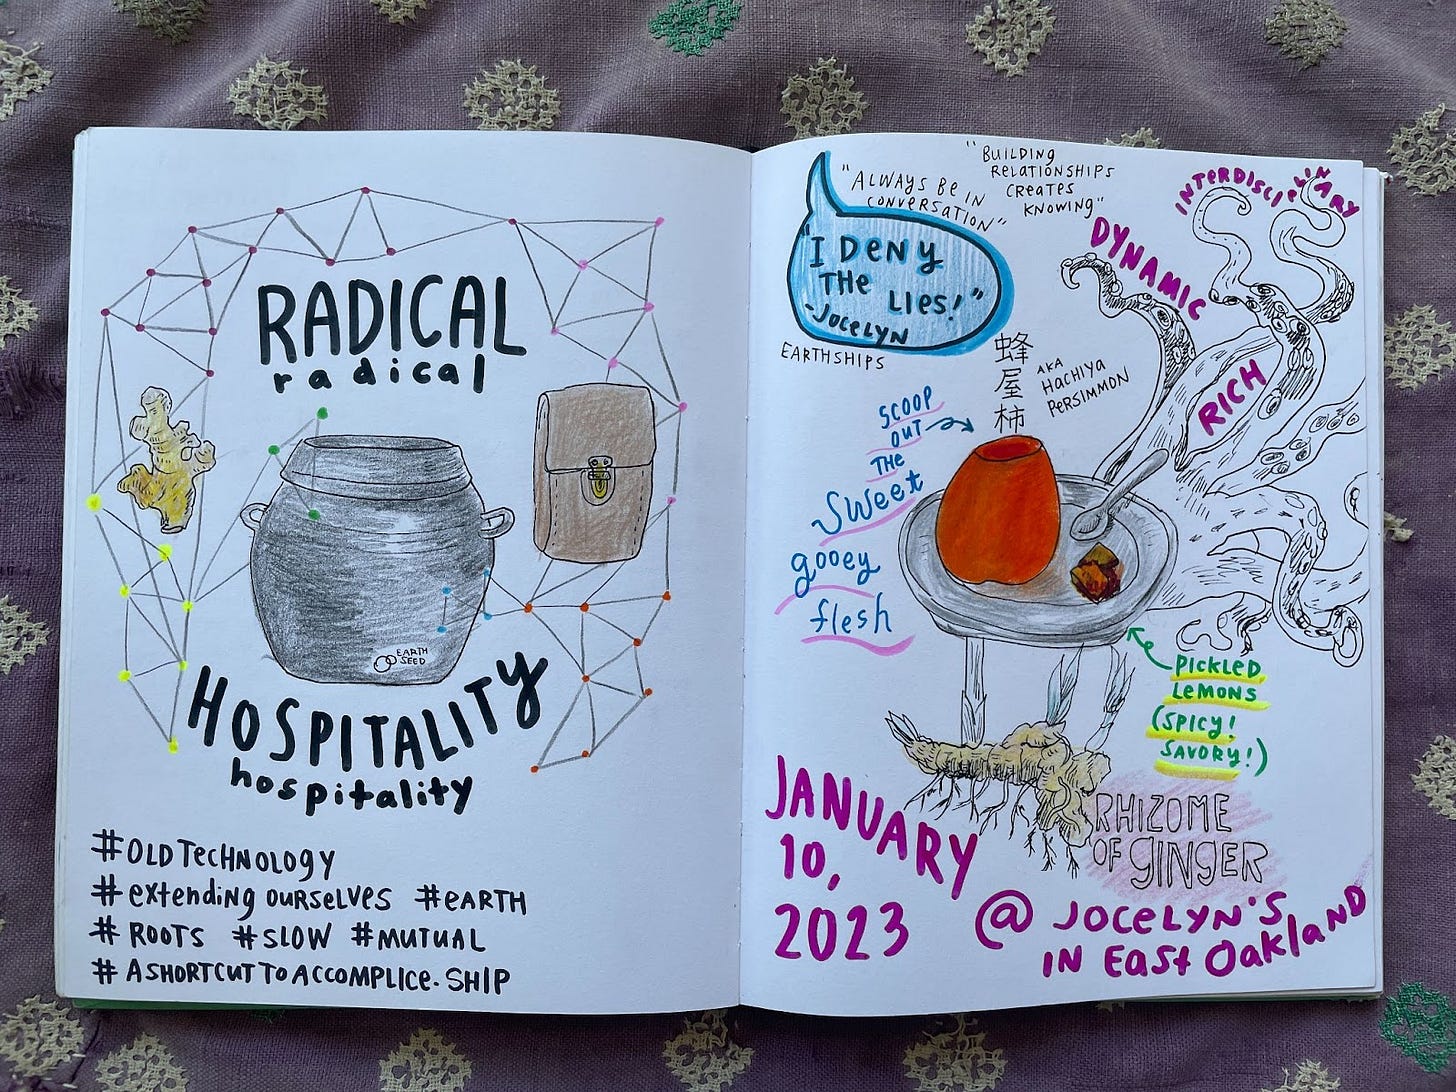 RADICAL
radical
EARTH
SEED
HOSPITALITY
hospitality
#OLD TECHNOLOGY
#extending OURSELVES #EARTH
# ROOTS #SLOW #MUTUAL
# A SHORTCUT TO ACCOMPLICE-SHIP
"BUILDING
RELATIONSHIPS
CREATES
KNOWING"
"ALWAYS BE IN
CONVERSATION"
"I DENY
THE LIES!"
-JOCELYN
EARTHSHIPS
INTERDISCIPLINARY
DYNAMIC
RICH
蜂
屋
柿
AKA
HACHIYA
PERSIMMON
SCOOP
OUT
THE
Sweet
gooey
flesh
PICKLED
LEMONS
(SPICY!
SAVORY!)
RHIZOME
OF GINGER
JANUARY
10,
2023
@ JOCELYN'S
IN EAST OAKLAND